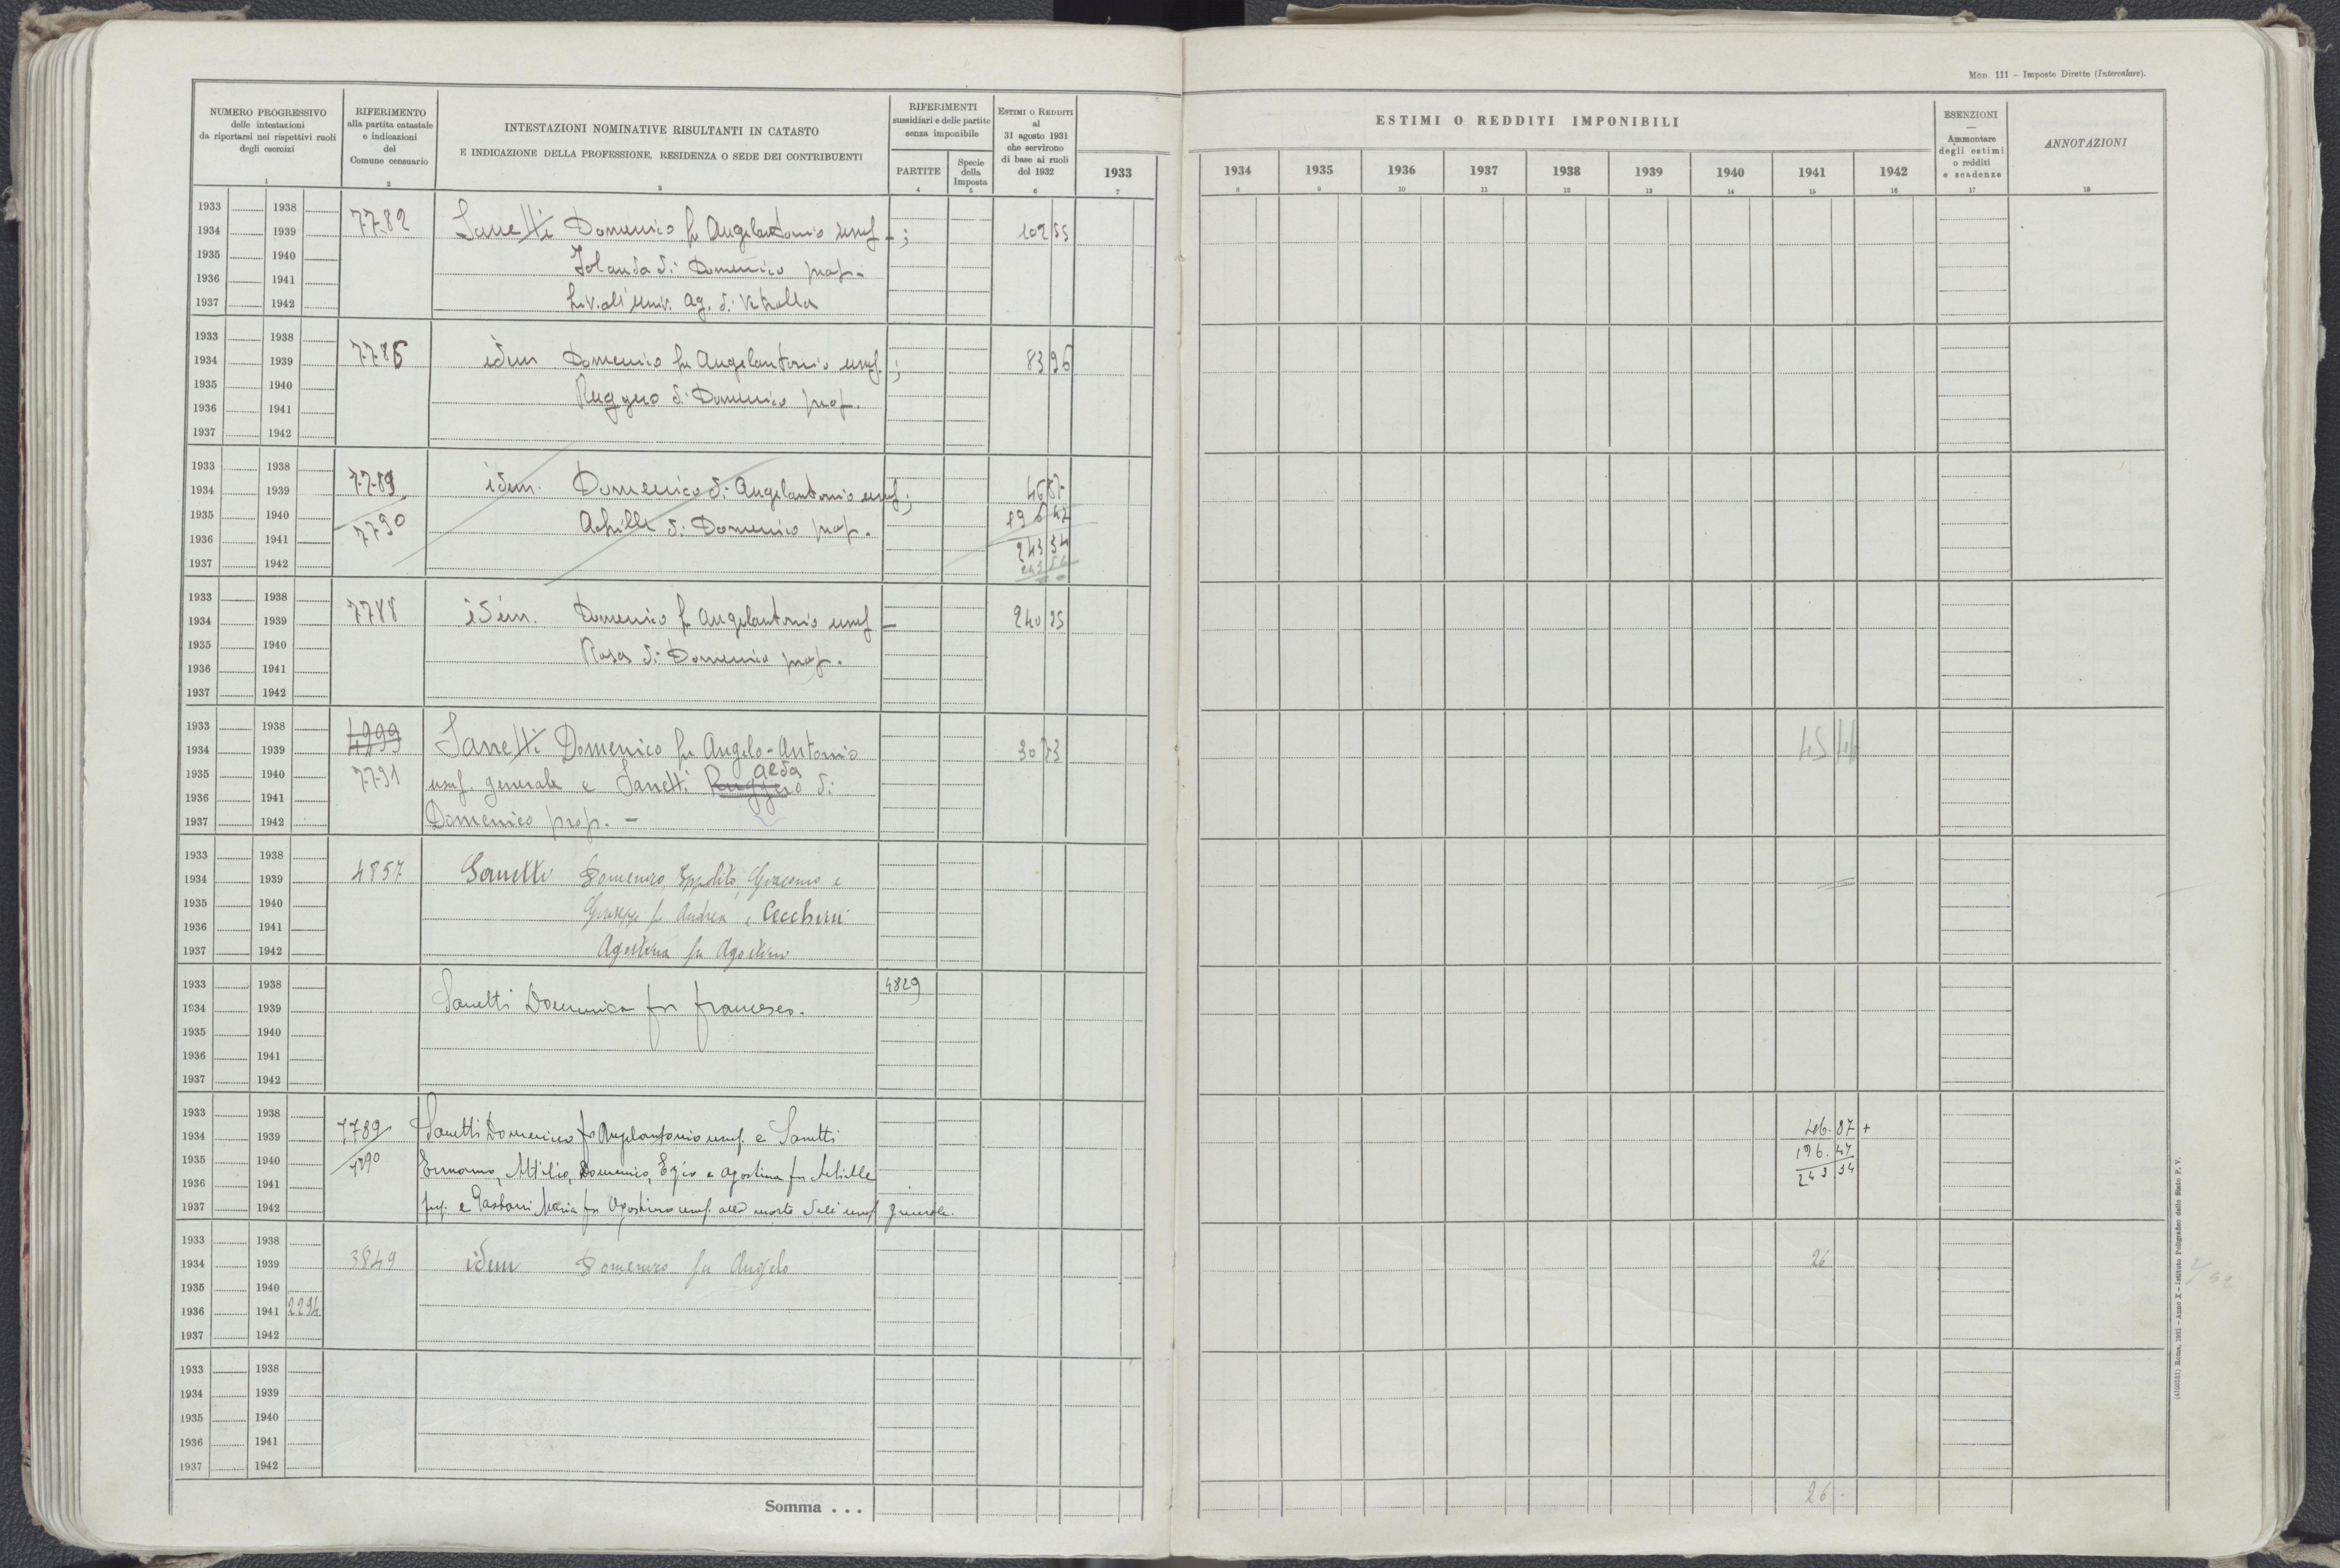 Mod. 111 - Imposte Dirette (Intercalare).
NUMERO PROGRESSIVO
delle intestazioni
da riportarsi nei rispettivi ruoli
degli esercizi
1
RIFERIMENTO
alla partita catastale
e indicazioni
del
Comune censuario
2
INTESTAZIONI NOMINATIVE RISULTANTI IN CATASTO
E INDICAZIONE DELLA PROFESSIONE, RESIDENZA O SEDE DEI CONTRIBUENTI
3
RIFERIMENTI
sussidiari e delle partite
senza imponibile
PARTITE
4
Specie
della
Imposta
5
ESTIMI O REDDITI
al
31 agosto 1931
che servirono
di base ai ruoli
del 1932
6
ESTIMI O REDDITI IMPONIBILI
1933 1934 1935 1936 1937 1938 1939 1940 1941 1942
7 8 9 10 11 12 13 14 15 16
ESENZIONI
—
Ammontare
degli estimi
o redditi
e scadenze
17
ANNOTAZIONI
18
1933 1938
1934 1939 7782 Sanetti Domenico fu Angelantonio usuf. ; 102 55
1935 1940 Iolanda di Domenico prop.
1936 1941
1937 1942 liv. all'univ. Ag. di Vetralla
1933 1938
1934 1939 7786 idem Domenico fu Angelantonio usuf. ; 83 96
1935 1940
1936 1941 Ruggero di Domenico prop.
1937 1942
1933 1938
1934 1939 7789 idem. Domenico di Angelantonio usuf. ; 46 87
1935 1940 7790 Achille di Domenico prop. 196 47
1936 1941 243 34
1937 1942
1933 1938
1934 1939 7788 idem. Domenico fu Angelantonio usuf. 240 25
1935 1940 Rosa di Domenico prop.
1936 1941
1937 1942
1933 1938 4999
1934 1939 Sanetti Domenico fu Angelo-Antonio 30 23
1935 1940 7791 usuf. generale e Sanetti Ruggero Alda di
1936 1941
1937 1942 Domenico prop. -
1933 1938
1934 1939 4857 Sanetti Domenico, Ippolito, Giacomo e
1935 1940 Giuseppe fu Andrea e Cecchini
1936 1941
1937 1942 Agostina fu Agostino
1933 1938 4829
1934 1939 Sanetti Domenica fu Francesco.
1935 1940
1936 1941
1937 1942
1933 1938
1934 1939 7789 Sanetti Domenico fu Angelantonio usuf. e Sanetti 46. 87 +
1935 1940 7790 Ermanno, Attilio, Domenico, Ezio e Agostina fu Achille 196. 47
1936 1941 243 34
1937 1942 prop. e Maria fu Agostino usuf. alla morte dell'usuf. generale.
1933 1938
1934 1939 3849 idem Domenico fu Angelo 26
1935 1940
1936 1941 2294
1937 1942
1933 1938
1934 1939
1935 1940
1936 1941
1937 1942
Somma . . . 26 -
(4100351) Roma, 1931 - Anno X - Istituto Poligrafico dello Stato P. V.